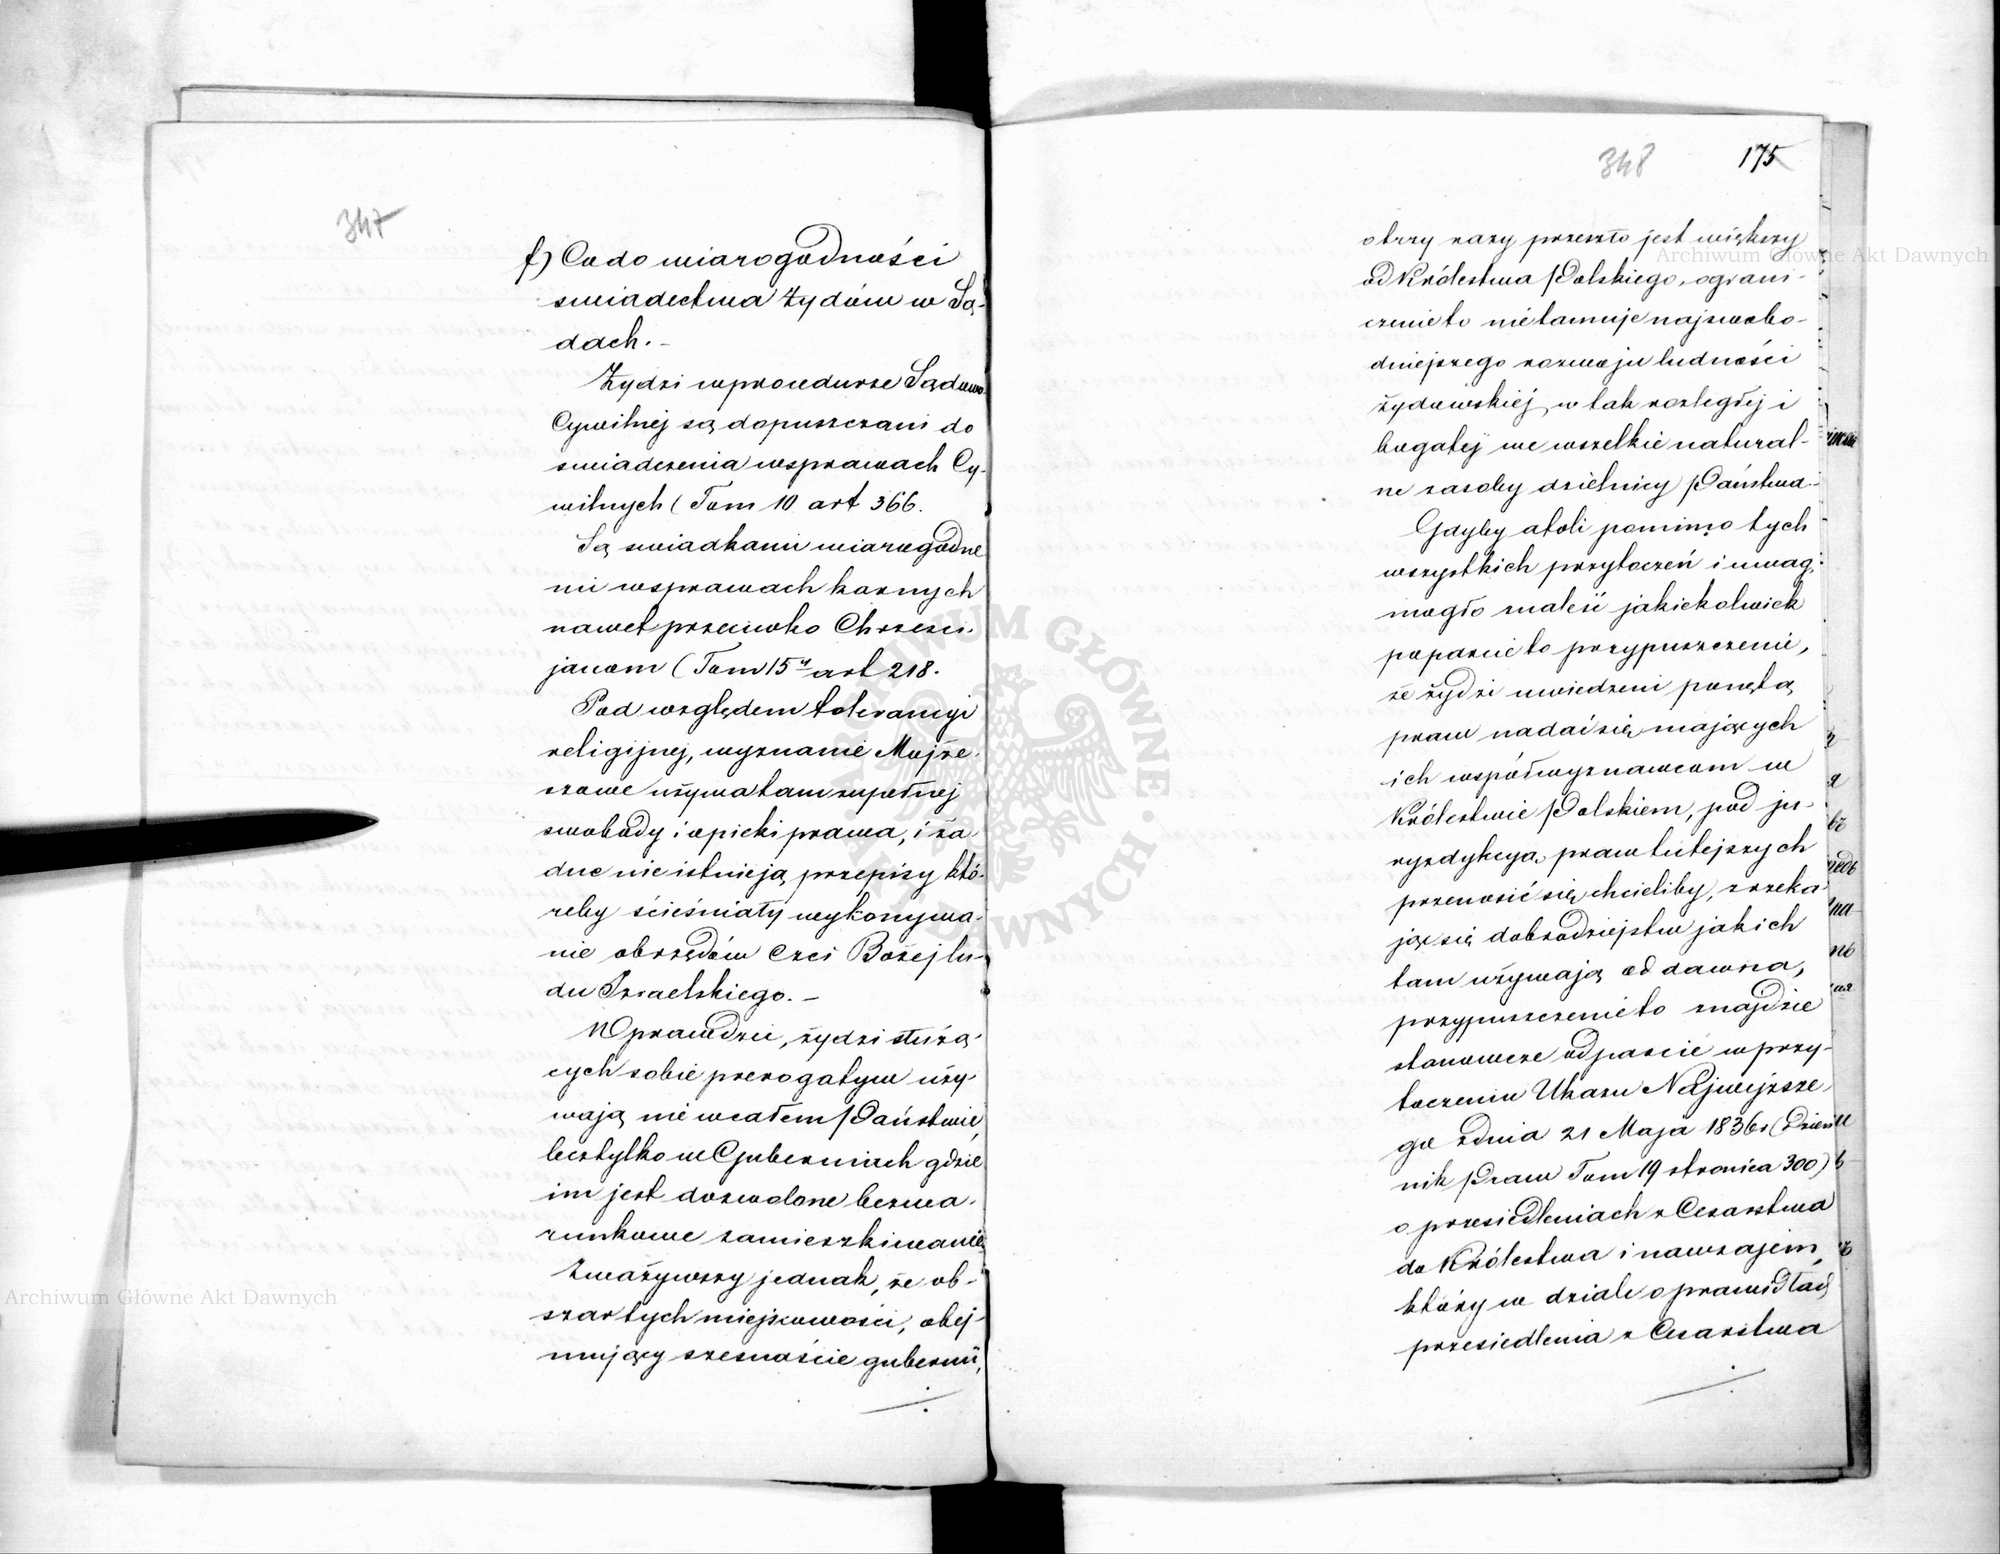 347
f) Co do wiarogodności
swiadectwa Żydów w Są-
dach. -
Żydzi w procedurze Sądowo
Cywilnej są dopuszczani do
swiadczenia w sprawach Cy-
wilnych (Tom 10 art 366.
Są swiadkami wiarogodne
mi w sprawach karnych
nawet przeciwko Chrześci-
janom (Tom 15y art 218.
Pod względem tolerancyi
religijnej, wyznanie Mojże-
szowe używa tam zupełnej
swobody i opieki prawa, i ża-
dne nie istnieją przepisy któ-
reby ścieśniały wykonywa-
nie obrzędów Czci Bożej lu-
du Izraelskiego. -
Wprawdzie, żydzi służą-
cych sobie prerogatyw uży-
wają nie w całem Państwie,
lecz tylko w Guberniach gdzie
im jest dozwolone bezwa-
runkowe zamieszkiwanie
Zważywszy jednak, że ob-
szar tych miejscowości, obej-
mujący szesnaście gubernii,
348 175
o trzy razy przeszło jest większy
od Królestwa Polskiego, ograni-
czenie to nie tamuje najswobo-
dniejszego rozwoju ludności
żydowskiéj w tak rozległej i
bogatej we wszelkie natural-
ne zasoby dzielnicy Państwa.-
Gdyby atoli pomimo tych
wszystkich przytoczeń i uwag,
mogło znaleść jakiekolwiek
poparcie to przypuszczenie,
że żydzi uwiedzeni ponętą
praw nadać się mających
ich współwyznawcom w
Królestwie Polskiem, pod ju-
ryzdykcyą praw tutejszych
przenosić się chcieliby, zrzeka-
jąc się dobrodziejstw jakich
tam używają od dawna,
przypuszczenie to znajdzie
stanowcze odparcie w przy-
toczeniu Ukazu Najwyższe-
go z dnia 21 Maja 1836 r (Dzien
nik Praw Tom 19 stronica 300)
o przesiedleniach z Cesarstwa
do Królestwa i nawzajem,
który w dziale o prawidłach
przesiedlenia z Cesarstwa
Archiwum Główne Akt Dawnych
Archiwum Główne Akt Dawnych
ARCHIWUM GŁÓWNE AKT DAWNYCH